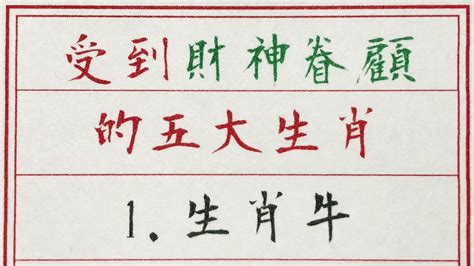 受到財神眷顧
的五大生肖
1.生肖牛